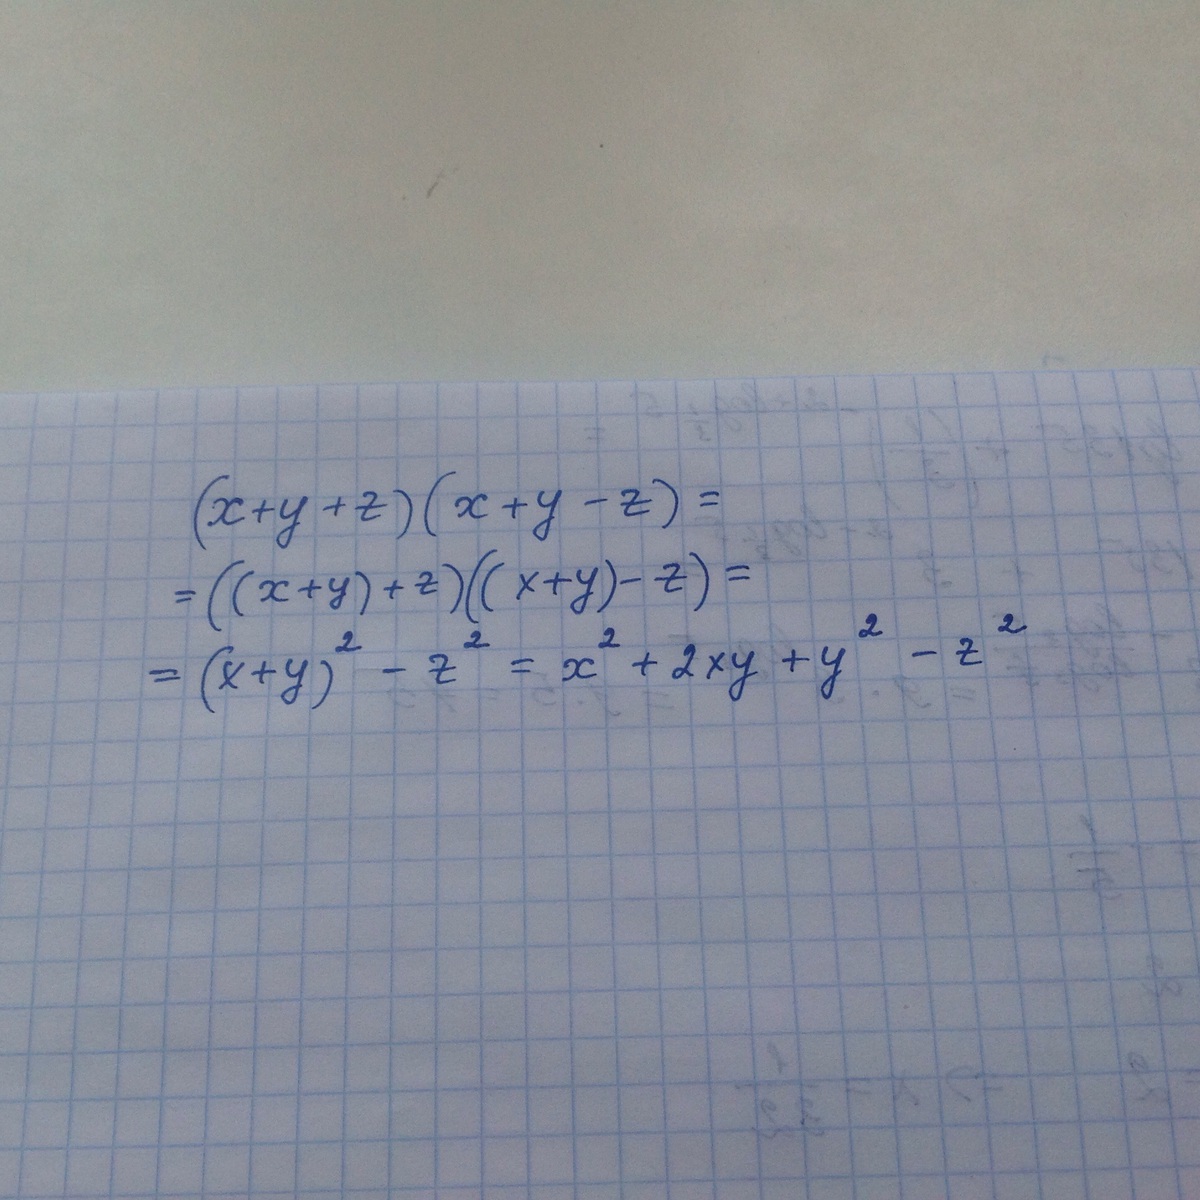 (x+y+z)(x+y-z)=
=((x+y)+z)((x+y)-z)=
=(x+y)²-z²=x²+2xy+y²-z²